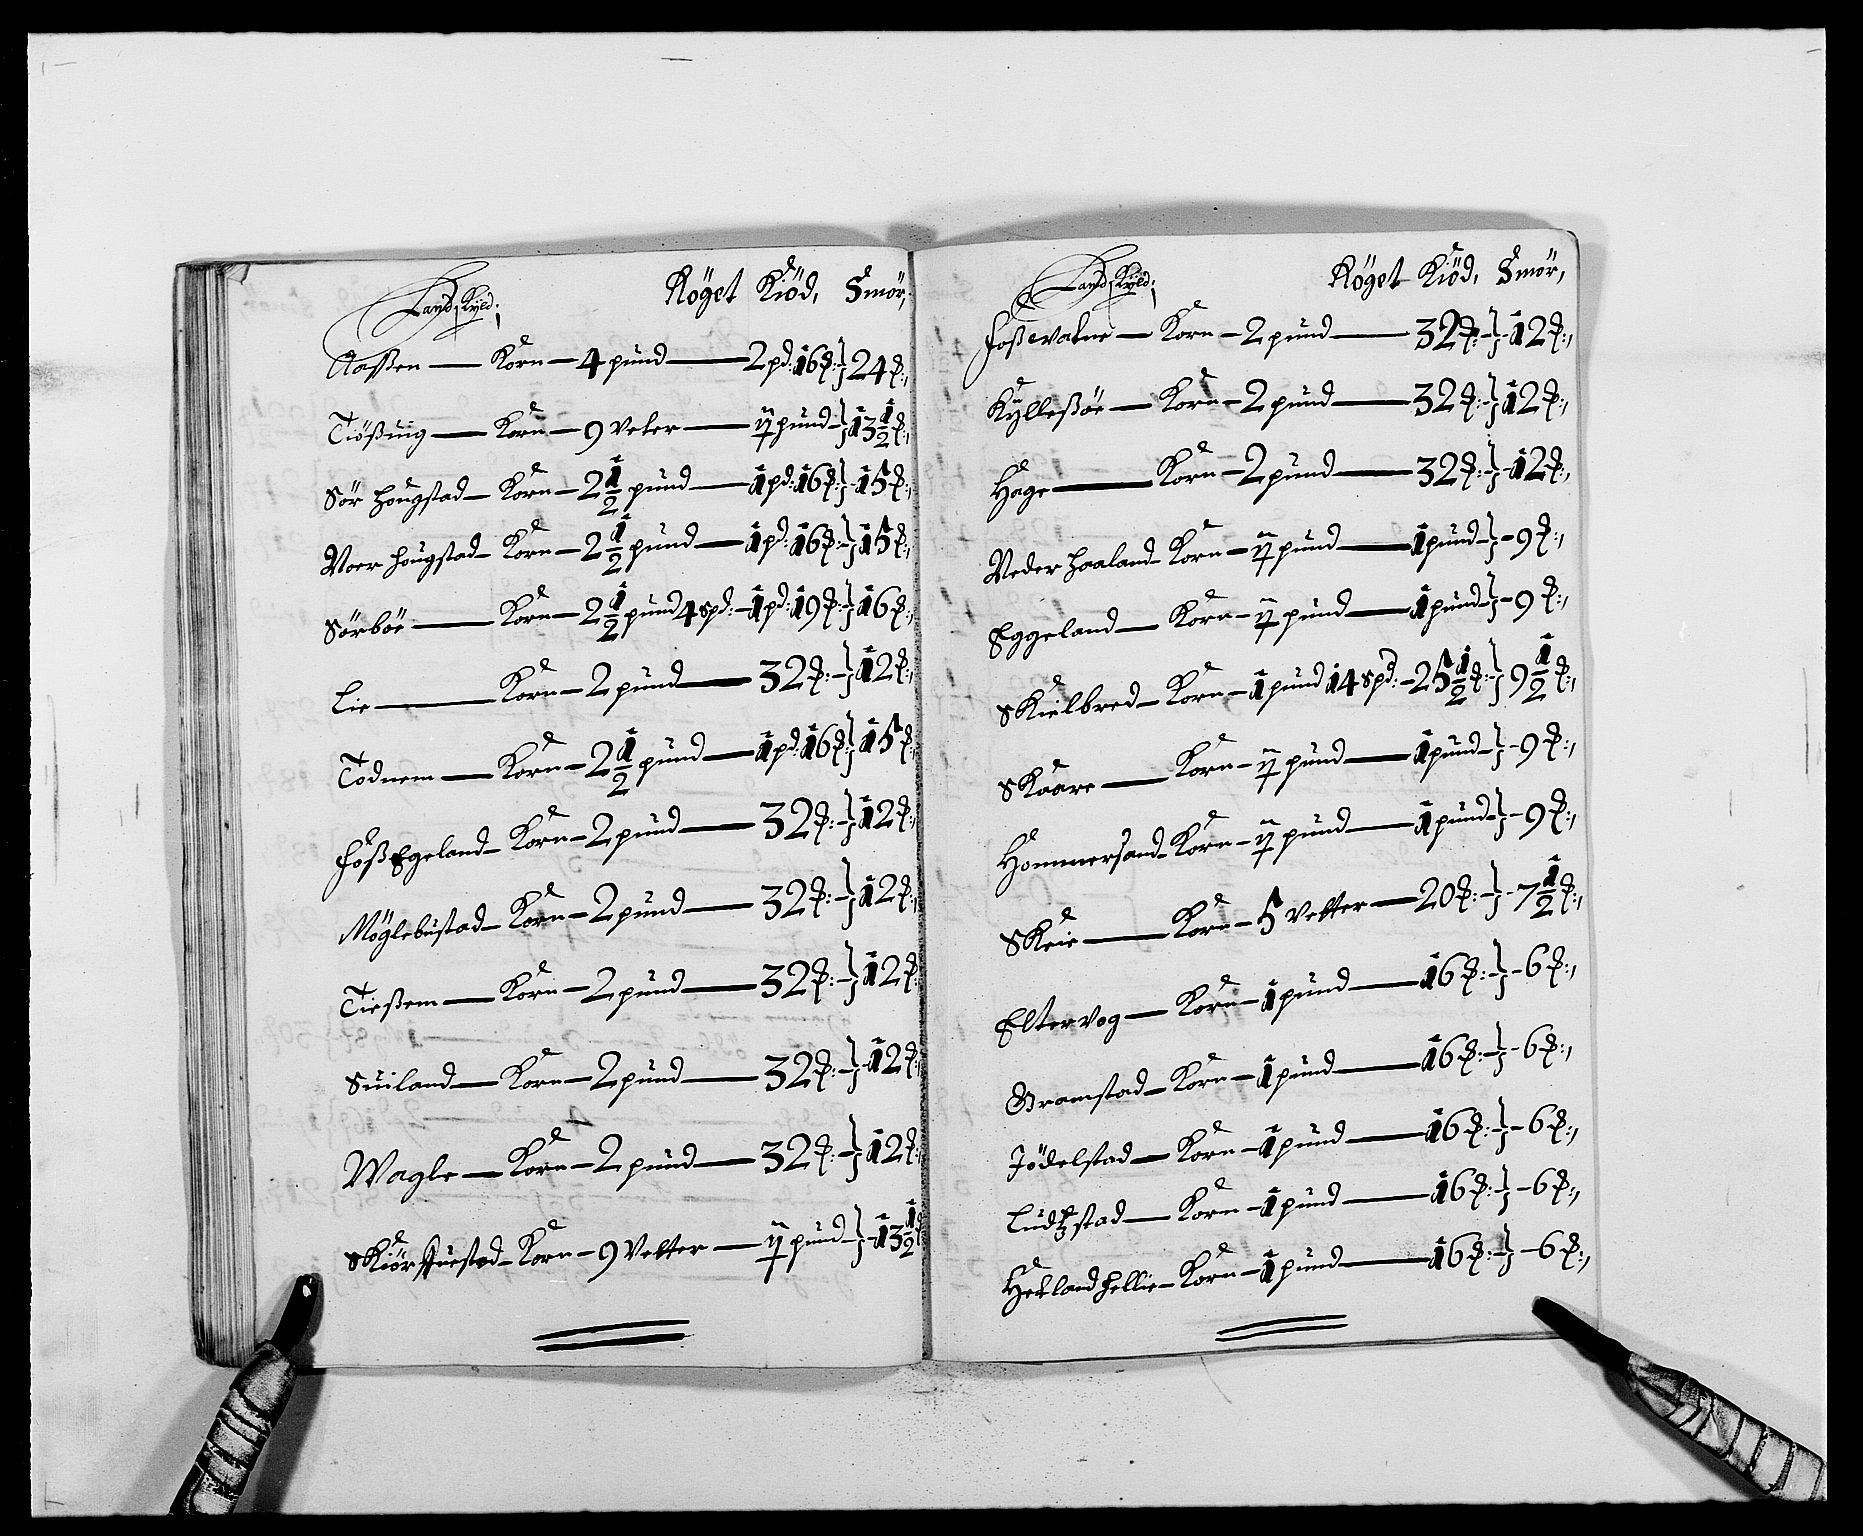 Landskyld: Röget Kiöd, Smör,
Aaßen — Korn – 4 pund — 2 pd: 16 ℔: } 24 ℔:,
Tiößing — Korn – 9 Veter — ij pund – } 13 1/2 ℔:,
Sör hougstad – Korn – 2 1/2 pund — 1 pd: 16 ℔: } 15 ℔:,
Noer hougstad – Korn – 2 1/2 pund — 1 pd: 16 ℔: } 15 ℔:,
Sörböe — Korn – 2 1/2 pund 4 spd: – 1 pd: 19 ℔: } 16 ℔:,
Lie — Korn – 2 pund — 32 ℔: – } 12 ℔:,
Todnem — Korn – 2 1/2 pund — 1 pd: 16 ℔: } 15 ℔:,
Foß Egeland – Korn – 2 pund — 32 ℔: – } 12 ℔:,
Möglebustad – Korn – 2 pund — 32 ℔: – } 12 ℔:,
Tießem — Korn – 2 pund — 32 ℔: – } 12 ℔:
Suiland — Korn – 2 pund — 32 ℔: – } 12 ℔:
Wagle — Korn – 2 pund — 32 ℔: – } 12 ℔:
Korn – 9 Vetter — ij pund – } 13 1/2
Landskyld: Röget Kiöd, Smör,
Foßevatne — Korn – 2 pund — 32 ℔: – } – 12 ℔:,
Kylleßöe — Korn – 2 pund — 32 ℔: – } 12 ℔:,
Hage — Korn – 2 pund — 32 ℔: – } – 12 ℔:,
Neder haaland – Korn – ij pund — 1 pund – } – 9 ℔:,
Eggeland — Korn – ij pund — 1 pund – } – 9 ℔:,
Skielbred – Korn – 1 pund 14 spd: – 25 1/2 ℔: – } 9 1/2 ℔:,
Skaare — Korn – ij pund — 1 pund – } – 9 ℔:,
Hommersand – Korn – ij pund — 1 pund – } – 9 ℔:,
Skeie — Korn – 5 Vetter — 20 ℔: – } – 7 1/2 ℔:,
Eltervog — Korn – 1 pund — 16 ℔: – } – 6 ℔:,
Gramstad – Korn – 1 pund — 16 ℔: – } – 6 ℔:,
Jödelstad – Korn – 1 pund — 16 ℔: – } – 6 ℔:,
Ludtzstad — Korn – 1 pund — 16 ℔: – } – 6 ℔:,
Hetland hellie – Korn – 1 pund — 16 ℔: – } – 6 ℔:,